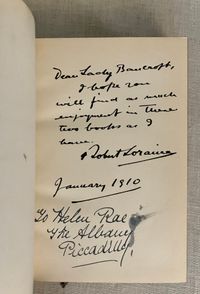 Dear Lady Bancroft,
I hope you
will find as much
enjoyment in these
two books as I
have.
Robert Loraine
January 1910
To Helen Rae
The Albany
Piccadilly.